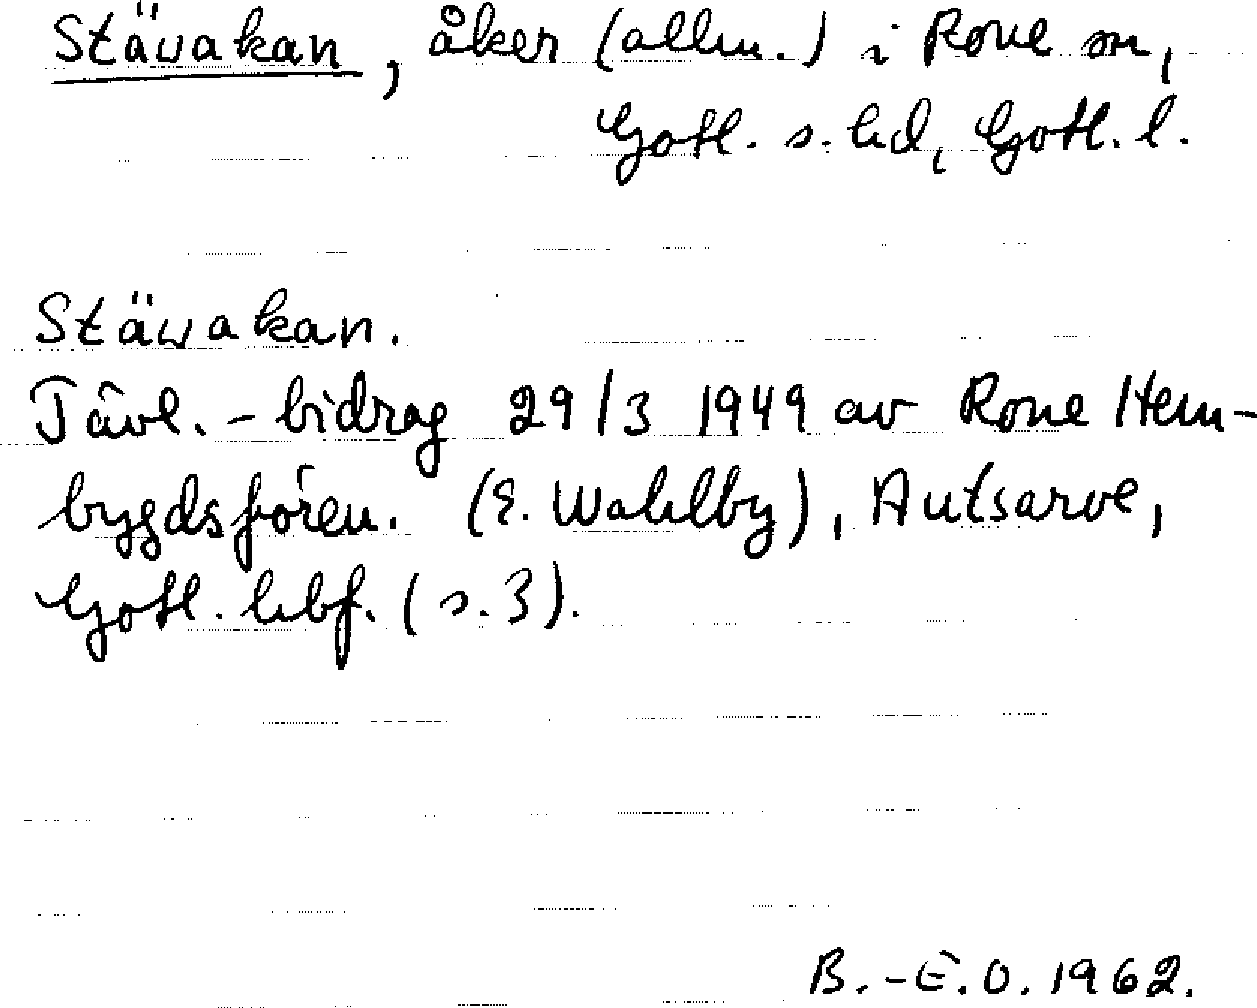 Stävakan, åker (allm.) i Rone sn,
Gotl. s. hd, Gotl. l.
Stävakan.
Tävl.-bidrag 29/3 1949 av Rone Hem-
bygdsfören. (E. Wahlby), Autsarve,
Gotl. hbf. (s. 3).
B.-E.O. 1962.